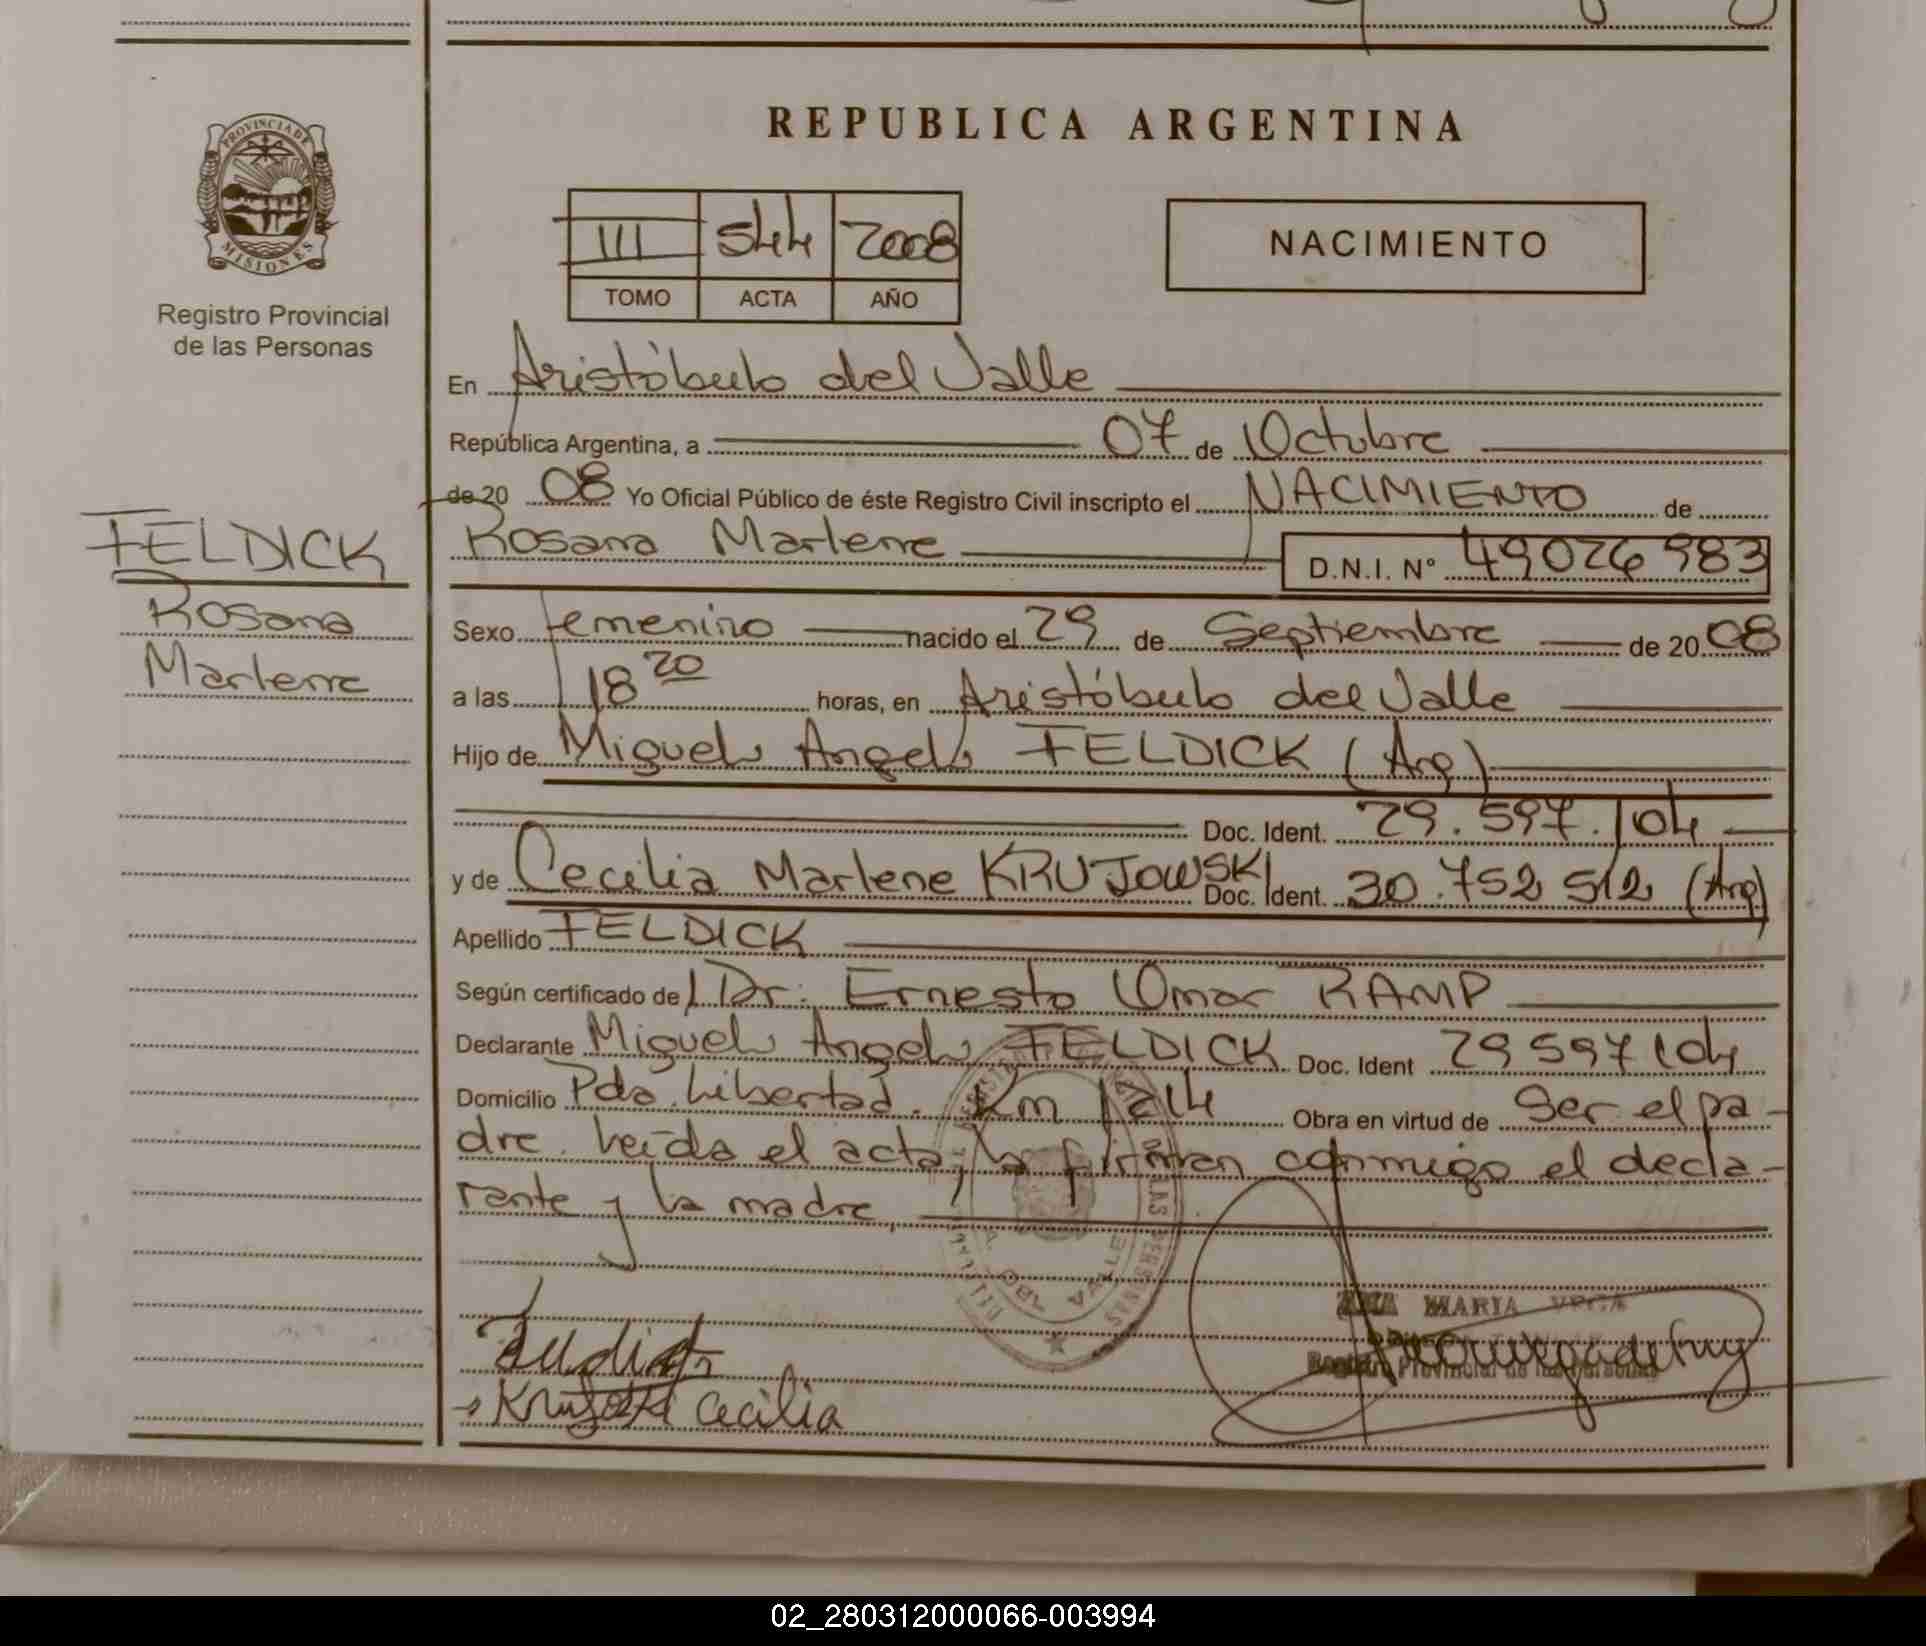 PROVINCIA DE
MISIONES
Registro Provincial
de las Personas
FELDICK
Rosana
Marlene
REPUBLICA ARGENTINA
III 544 2008
TOMO ACTA AÑO
NACIMIENTO
En Aristóbulo del Valle
República Argentina, a 07 de Octubre
de 20 08 Yo Oficial Público de éste Registro Civil inscripto el NACIMIENTO de
Rosana Marlene D.N.I. N° 49026983
Sexo femenino nacido el 29 de Septiembre de 2008
a las 18 20 horas, en Aristóbulo del Valle
Hijo de Miguel Angel FELDICK (Arg)
Doc. Ident. 29.597.104
y de Cecilia Marlene KRUJOWSKI Doc. Ident. 30.752512 (Arg)
Apellido FELDICK
Según certificado de Dr. Ernesto Omar RAMP
Declarante Miguel Angel FELDICK Doc. Ident 29597104
Domicilio Pdo. Libertad. Km 1214 Obra en virtud de Ser el pa-
dre. Leída el acta, la firman conmigo el decla-
rante y la madre,
DE LAS PERSONAS
VALLE
ANA MARIA VEGA
Registro Provincial de las Personas
Cecilia
02_280312000066-003994